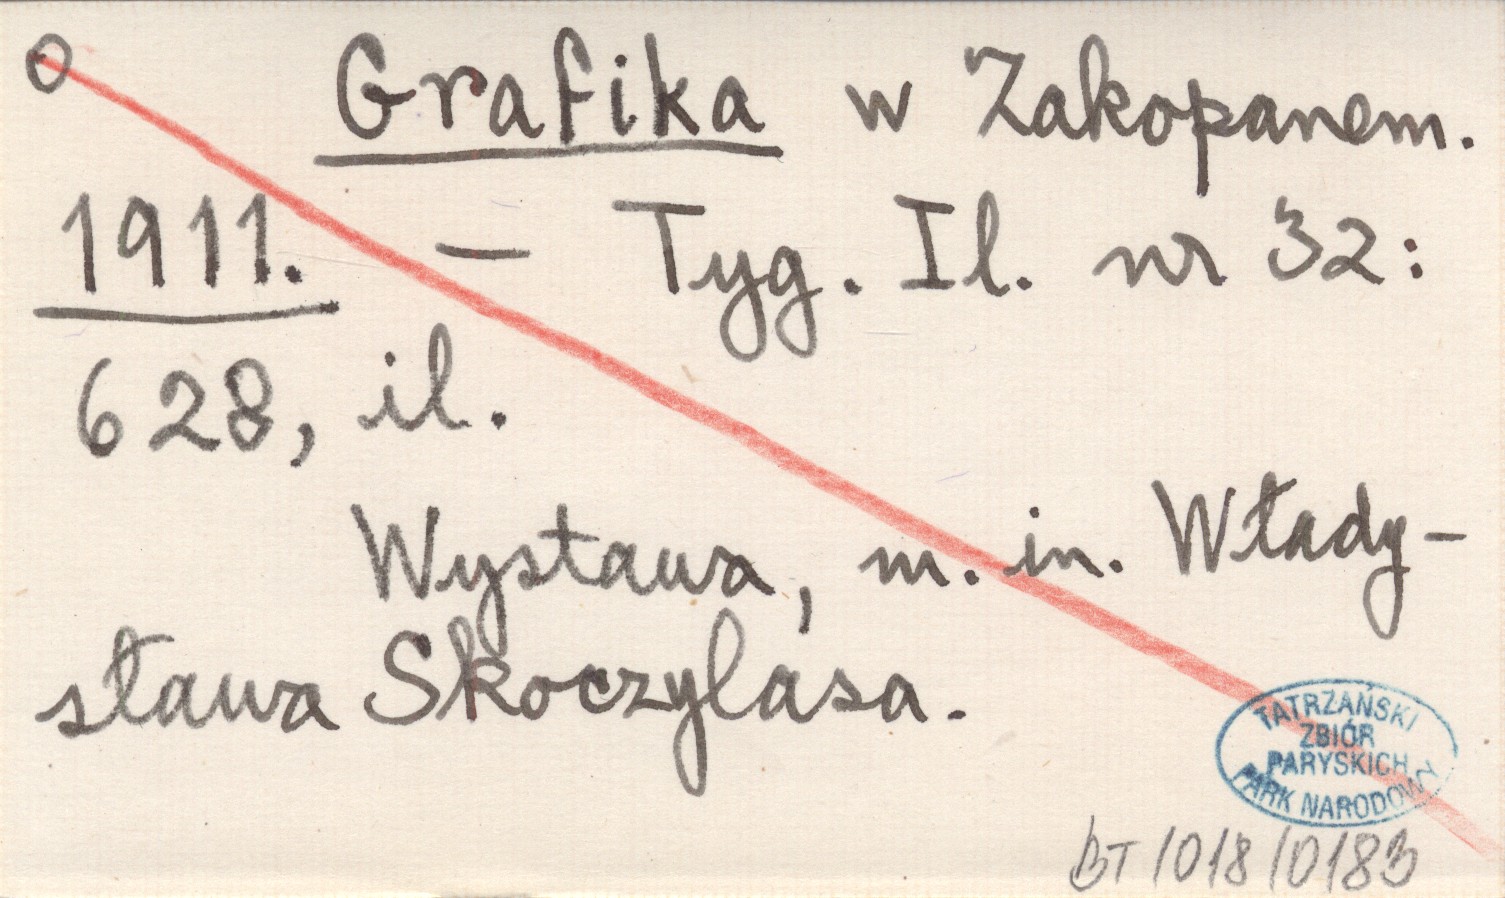 O Grafika w Zakopanem.
1911. — Tyg. Il. nr 32:
628, il.
Wystawa, m. in. Włady-
sława Skoczylasa.
TATRZAŃSKI
ZBIÓR
PARYSKICH
PARK NARODOWY
BT/018/0183